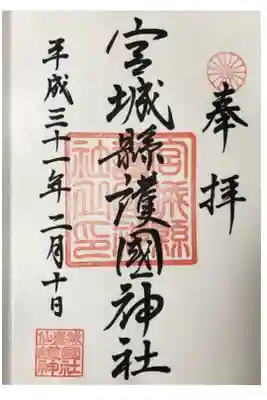 奉拝
宮城縣護國神社
宮城縣
護國神
社之印
平成三十一年 二月十日